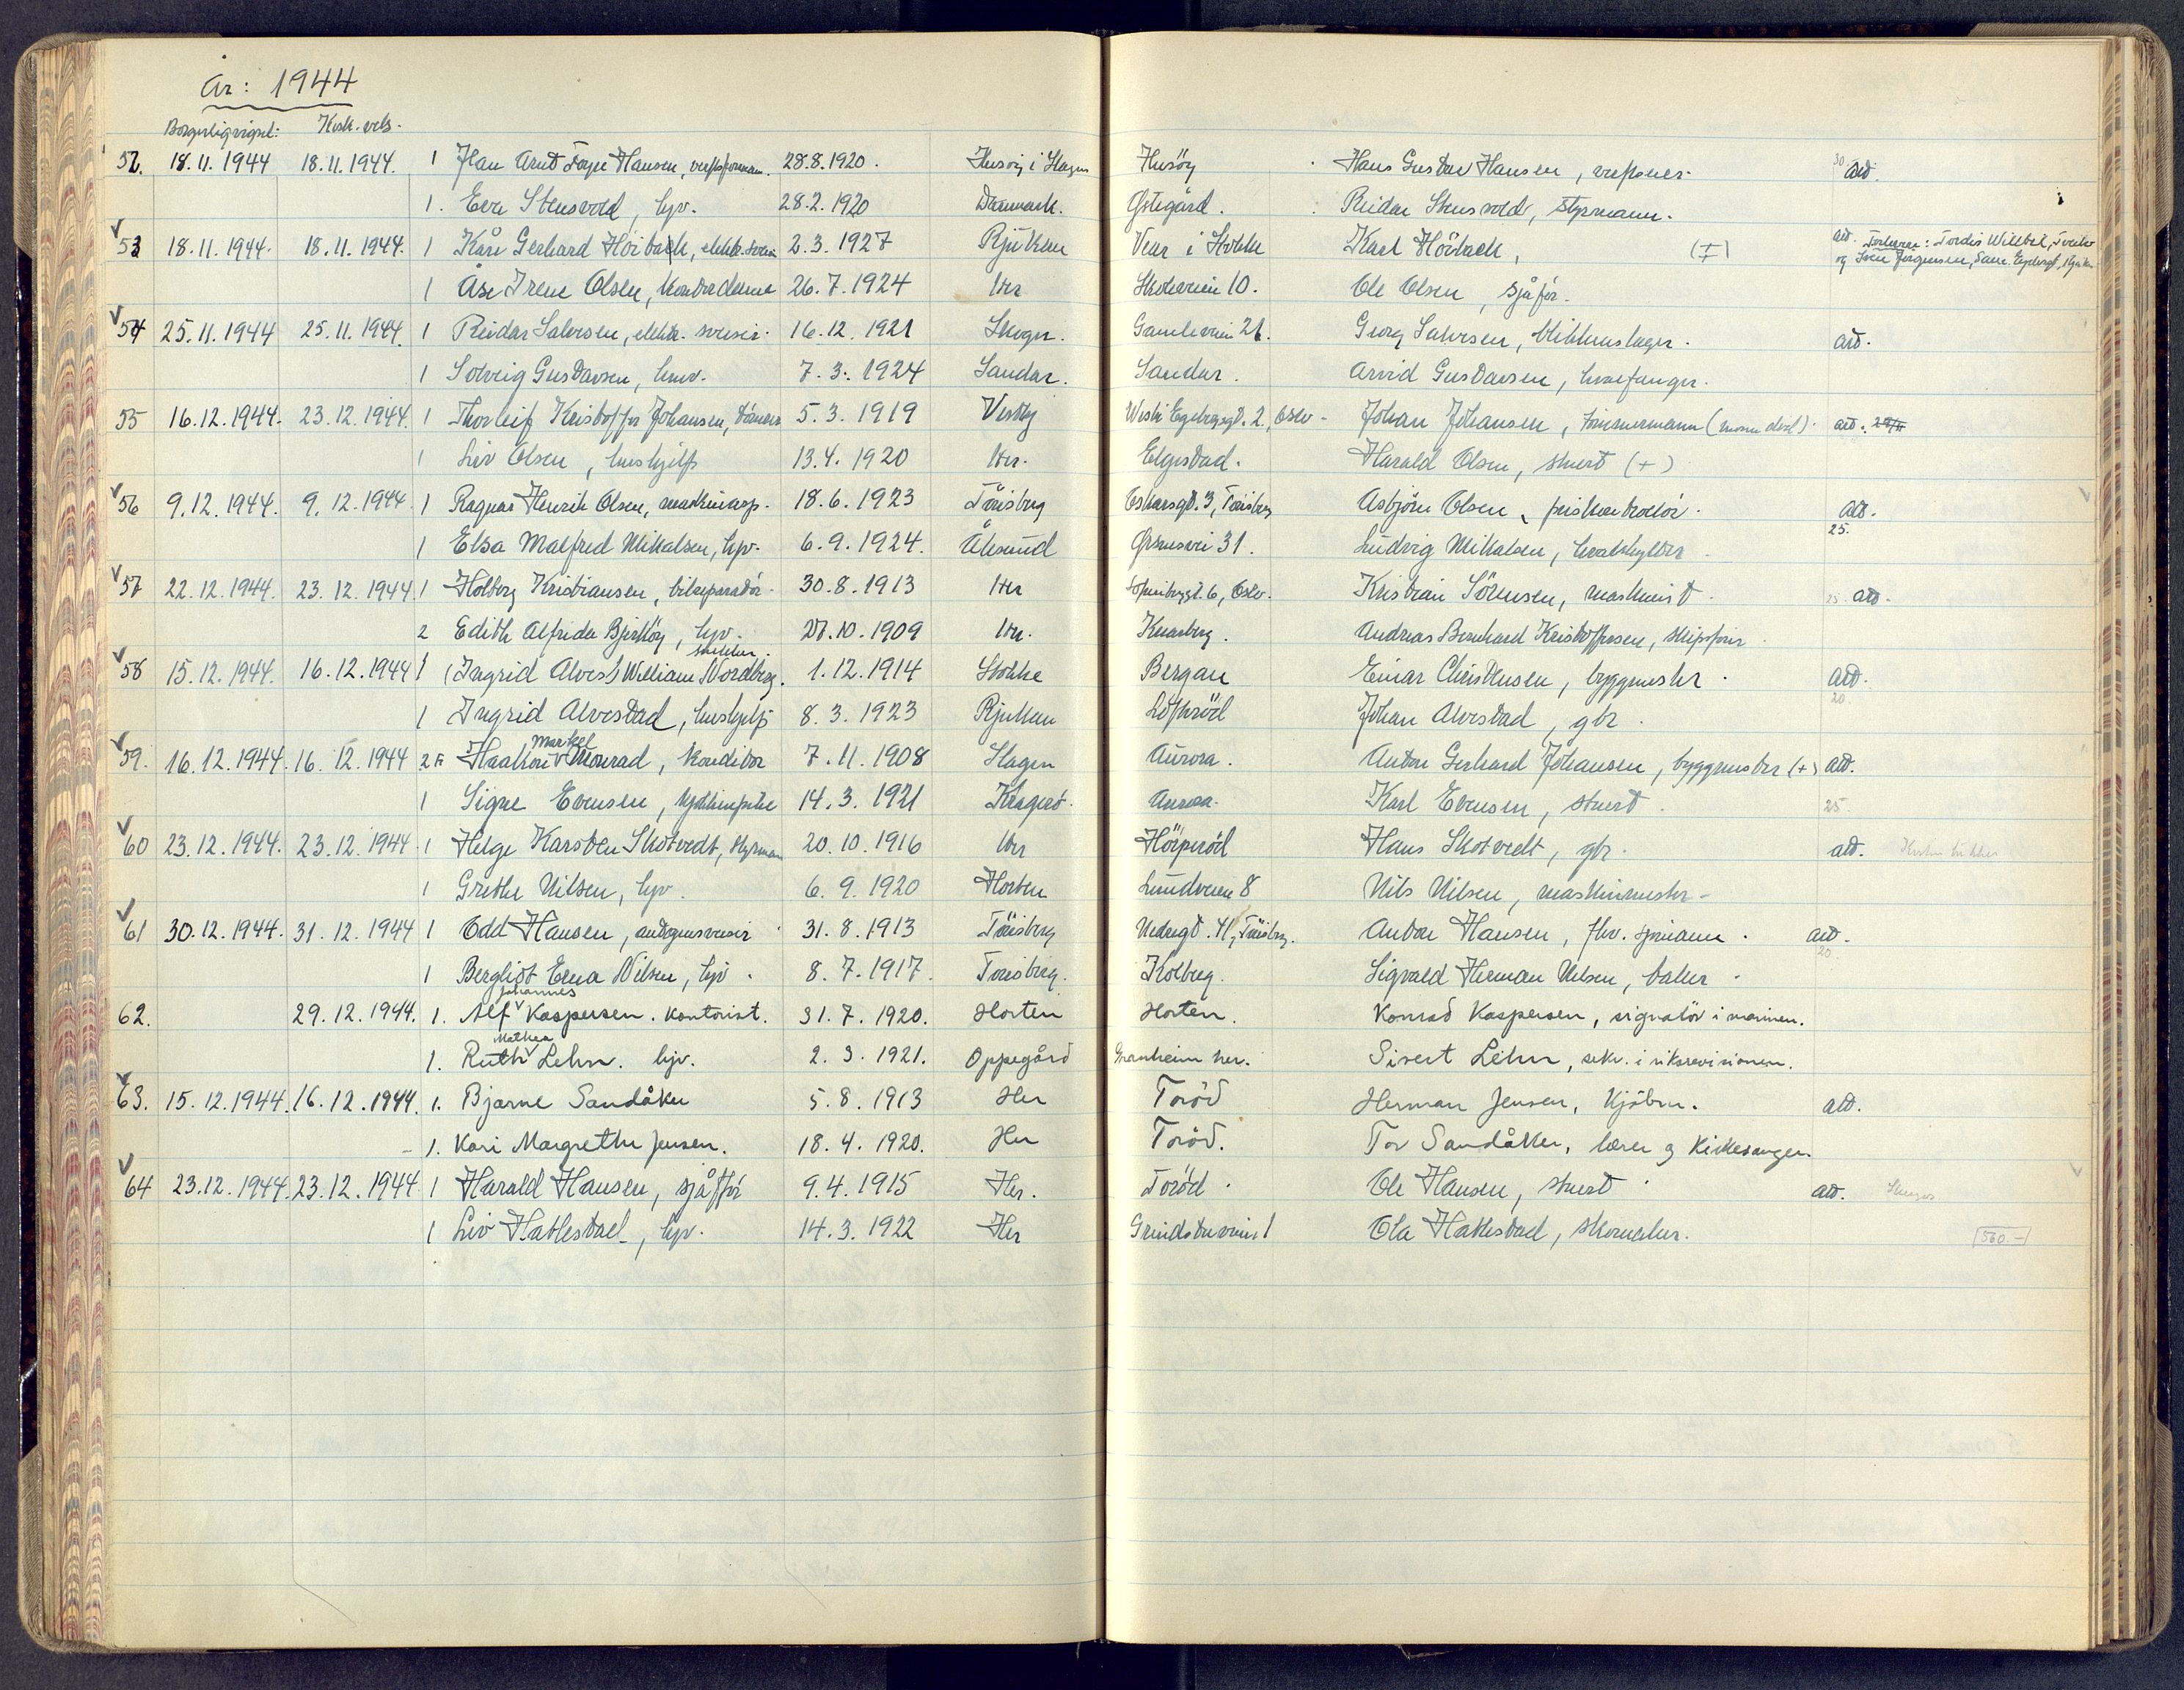 År: 1944
Borgerlig vigsel: Kirk. vels.
52. 18.11.1944 18.11.1944. 1 Arnt Hansen, 28.8.1920. Husøy i Husöy Hans Gustav Hansen, verftseier 30 att.
1. Eva Stensvold, hjv. 28.2.1920 Danmark. Østegård. Reidar Stensvold, Styrmann.
53 18.11.1944. 18.11.1944. 1 Kåre Gerhard Höibach, elektr. 2.3.1927 Rjukan Vear i Stokke Karl Höibach, (+) att. Forlovere: Tordis
1 Åse Irene Olsen, kontordame 26.7.1924 Her 10. Ole Olsen, sjåför. og Jörgensen,
54 25.11.1944 25.11.1944. 1 Reidar Salvesen, elektr. 16.12.1921 Skoger. Gamleveien 21. Georg Salvesen, blikkenslager. att.
1 Solveig Gustavsen, hmv. 7.3.1924 Sandar. Sandar. Arvid Gustavsen, hvalfanger.
55 16.12.1944. 23.12.1944. 1 Thorleif Kristoffer Johansen, 5.3.1919 Vestby 2, Oslo - Johan Johansen, tömmermann att.
1 Liv Olsen, hushjelp 13.4.1920 Her. Elgestad. Harald Olsen, stuert (+)
56 9.12.1944. 9.12.1944. 1 Ragnar Henrik Olsen, maskinasp. 18.6.1923 Tönsberg 3, Tönsberg Asbjörn Olsen, priskontrollör. att.
1 Elsa Malfred Mikalsen, hjv. 6.9.1924. Ålesund 31. Ludvig Mikalsen, hvalskytter 25.
57 22.12.1944. 23.12.1944. 1 Holberg Kristiansen, bilreparatör. 30.8.1913 Her 6, Oslo. Kristian Sörensen, maskinist. 25 att.
2 Edith Alfrida hjv. 27.10.1909 Her. Knarberg. Andreas Bernhard Kristoffersen, skipsförer
58 15.12.1944. 16.12.1944 1 (Ingrid Alves) William Nordberg. snekker. 1.12.1914 Stokke Bergan Einar Christensen, byggmester. att.
1 Ingrid Alvestad, hushjelp 8.3.1923 Rjukan Johan Alvestad, gbr. 20
59. 16.12.1944. 16.12.1944 2F Haakon Markel Monrad, konditor 7.11.1908 Slagen Aurora. Anton Gerhard Johansen, byggmester (+) att.
1 Signe Evensen, 14.3.1921 Kragerö. Aurora. Karl Evensen, stuert 25
60 23.12.1944. 23.12.1944. 1 Helge Karsten Skotvedt, styrmann 20.10.1916 Her Hans Skotvedt, gbr. att.
1 Grethe Nilsen, hjv. 6.9.1920 Horten 8 Nils Nilsen, maskinmester -
61 30.12.1944. 31.12.1944 1 Odd Hansen, 31.8.1913 Tönsberg Nedregt. 41, Tönsberg. Anton Hansen, att.
1 Bergliot Erna Nilsen, hjv. 8.7.1917. Tönsberg. Kolberg. Sigvald Herman Nilsen, baker. 20
62. 29.12.1944. 1. Alf Johannes Kaspersen. kontorist. 31.7.1920. Horten Horten. Konrad Kaspersen, signalör i marinen.
1. Ruth Mathea Lehn. hjv. 2.3.1921. Oppegård Granheim her. Sivert Lehn, sekr. i riksrevisionen.
63. 15.12.1944. 16.12.1944. 1. Bjarne Sandåker 5.8.1913 Her Toröd Herman Jensen, Kjöbm. att.
1. Kari Margrethe Jensen. 18.4.1920. Her Toröd. Tor Sandåker, lærer og kirkesanger.
64 23.12.1944. 23.12.1944 1 Harald Hansen, sjåffør 9.4.1915 Her. Toröd. Ole Hansen, stuert att.
1 Liv Hatlestad, hjv. 14.3.1922 Her Ola Hatlestad, 560.-